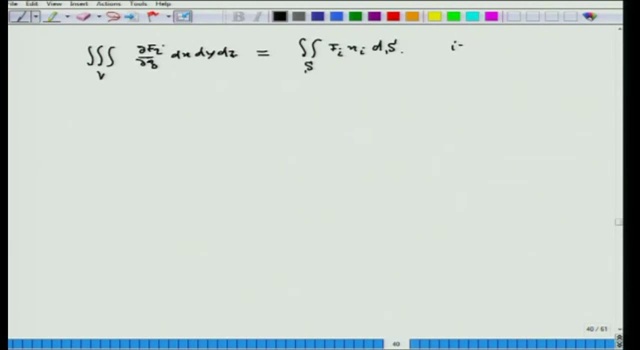 File Edit View Insert Actions Tools Help
∭_V ∂F_i/∂x_i dx dy dz = ∬_S F_i n_i dS. i-
40 / 61
40